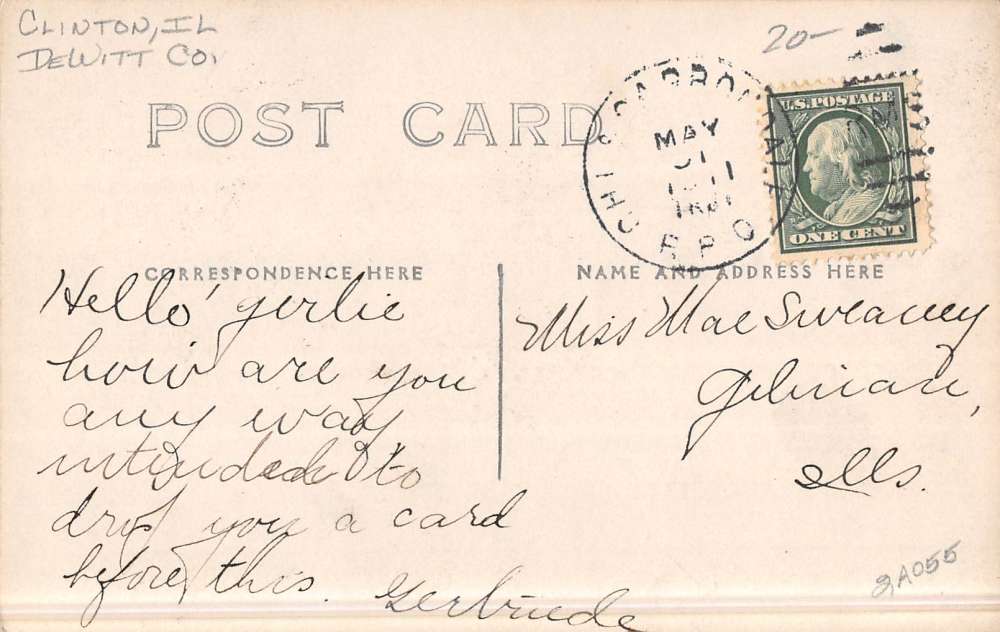 CLINTON, IL
DEWITT CO.
20-
POST CARD
MAY
R.P.O.
U.S. POSTAGE
ONE CENT
CORRESPONDENCE HERE
NAME AND ADDRESS HERE
Hello gerlie
how are you
any way
intended I to
drop you a card
before this.
Gertrude
Miss Mae Sweaney
Gilman,
Ills.
2A055